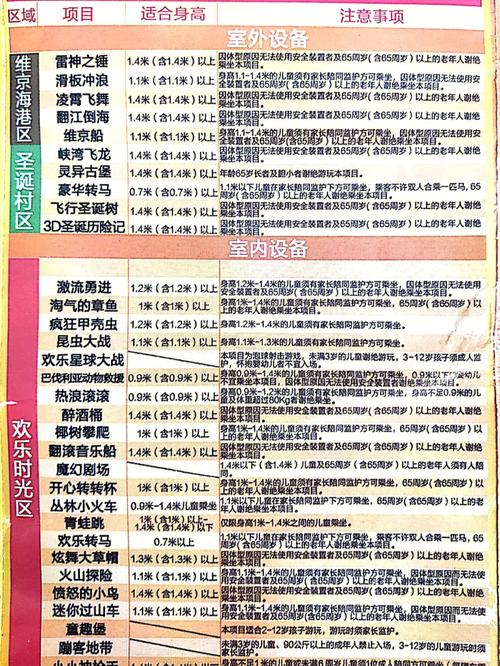 区域 项目 适合身高 注意事项
室外设备
维京海港区
雷神之锤 1.4米（含1.4米）以上 因体型原因无法使用安全装置者及65周岁（含65周岁）以上的老年人谢绝乘坐本项目。
滑板冲浪 1.1米（含1.1米）以上 身高1.1-1.4米的儿童须有家长陪同监护方可乘坐，因体型原因无法使用安全装置者及65周岁（含65周岁）以上的老年人谢绝乘坐本项目。
凌霄飞舞 1.4米（含1.4米）以上 因体型原因无法使用安全装置者及65周岁（含65周岁）以上的老年人谢绝乘坐本项目。
翻江倒海 1.4米（含1.4米）以上 因体型原因无法使用安全装置者及65周岁（含65周岁）以上的老年人谢绝乘坐本项目。
维京船 1.1米（含1.1米）以上 身高1.1米-1.4米的儿童须有家长陪同监护方可乘坐，因体型原因无法使用安全装置者及65周岁（含65周岁）以上的老年人谢绝乘坐本项目。
圣诞村区
峡湾飞龙 1.4米（含1.4米）以上 因体型原因无法使用安全装置者及65周岁（含65周岁）以上的老年人谢绝乘坐本项目。
灵异古堡 1.4米（含1.4米）以上 年龄65岁长者及胆小者谢绝游玩本项目。
豪华转马 0.7米（含0.7米）以上 1.1米以下儿童在家长陪同监护方可乘坐，乘客不许双人合乘一匹马，65周岁（含65周岁）以上的老年人谢绝乘坐本项目。
飞行圣诞树 1.4米（含1.4米）以上 因体型原因无法使用安全装置者及65周岁（含65周岁）以上的老年人谢绝乘坐本项目。
3D圣诞历险记 1.4米（含1.4米）以上 因体型原因无法使用安全装置者及65周岁（含65周岁）以上的老年人谢绝乘坐本项目。
室内设备
欢乐时光区
激流勇进 1.2米（含1.2米）以上 身高1.2米-1.4米的儿童须有家长陪同监护方可乘坐，因体型原因无法使用安全装置者及65周岁（含65周岁）以上的老年人谢绝乘坐本项目。
淘气的章鱼 1米（含1米）以上 身高1米-1.4米的儿童须有家长陪同监护方可乘坐，因体型原因无法使用安全装置者及65周岁（含65周岁）以上的老年人谢绝乘坐本项目。
疯狂甲壳虫 1.2米（含1.2米）以上 身高1.2米-1.4米的儿童须有家长陪同监护方可乘坐。
昆虫大战 1.1米（含1.1米）以上 身高1.1米-1.3米的儿童须有家长陪同监护方可乘坐。
欢乐星球大战 本项目为泡球射击游戏，未满3岁的儿童谢绝游玩，3-12岁孩子须成人监护，怀抱婴幼儿者不宜入场。
巴伐利亚动物救援 0.9米（含0.9米）以上 身高0.9米-1.4米的儿童须有家长陪同监护方可乘坐，
热浪滚滚 0.9米（含0.9米）以上 身高0.9米-1.2米的儿童须有家长陪同监护方可乘坐，身高不足0.9米的儿童及体重超过90Kg者谢绝乘坐。
醉酒桶 1.4米（含1.4米）以上 因体型原因无法使用安全装置者及65周岁（含65周岁）以上的老年人谢绝乘坐本项目。
椰树攀爬 1米（含1米）以上 身高1米-1.4米的儿童须有家长陪同监护方可乘坐，因体型原因无法使用安全装置者及65周岁（含65周岁）以上的老年人谢绝乘坐本项目。
翻滚音乐船 1.4米（含1.4米）以上 因体型原因无法使用安全装置者及65周岁（含65周岁）以上的老年人谢绝乘坐本项目。
魔幻剧场 1.4米以下（含1.4米）儿童及65周岁（含65周岁）以上的老年人须有人陪同。
开心转转杯 1米（含1米）以上 身高1米-1.4米的儿童须有家长陪同监护方可乘坐，
丛林小火车 0.9米-1.4米儿童乘坐
青蛙跳 1米（含1米）以上 1.4米（含1.4米）以下 仅限身高1米-1.4米之间的儿童乘坐。
欢乐转马 0.7米以上 1.1米以下儿童在家长陪同监护方可乘坐，乘客不许双人合乘一匹马，65周岁（含65周岁）以上的老年人谢绝乘坐本项目。
炫舞大草帽 1.3米（含1.3米）以上
火山探险 1.1米（含1.1米）以上
愤怒的小鸟 1.4米（含1.4米）以上
迷你过山车 1.1米（含1.1米）以上
童趣堡 本项目适合2-12岁孩子游玩，游玩时须家长监护。
蹦客地带 未满3岁的儿童、90公斤以上的成年人禁止入场，3-12岁儿童游玩时须